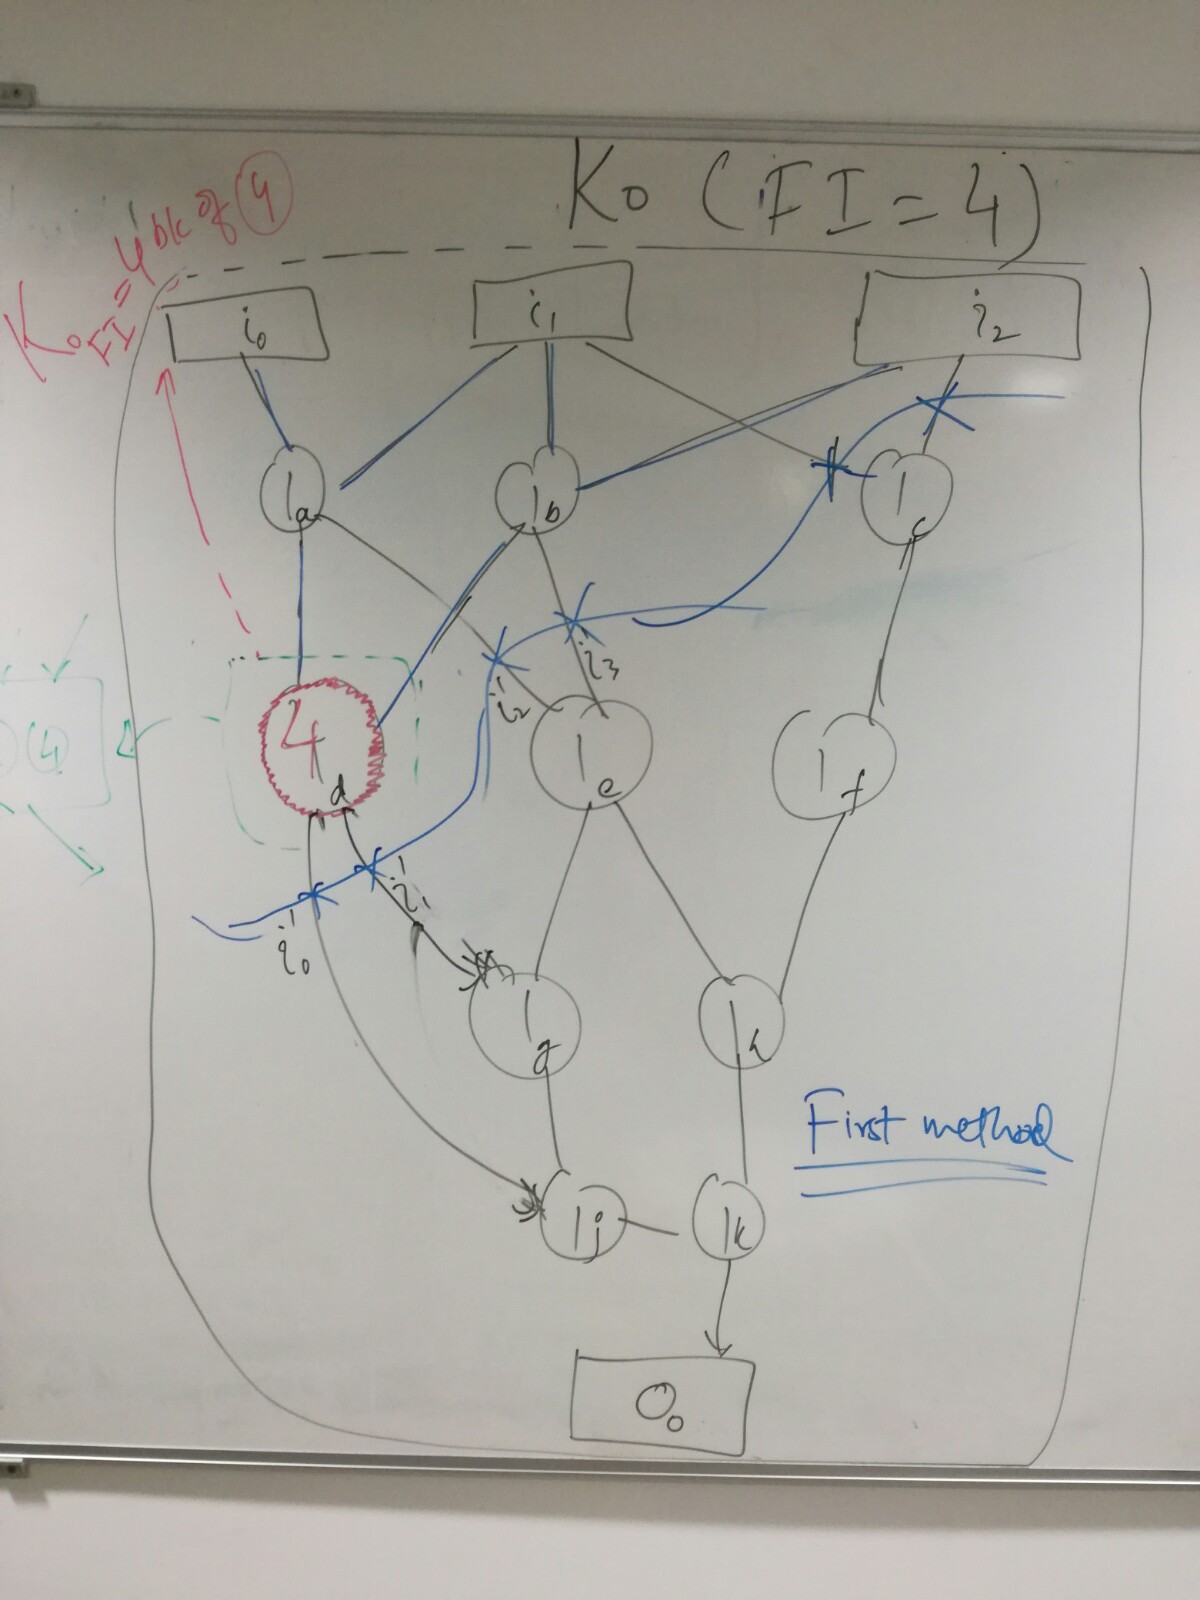 K0 (FI = 4)
K0 FI = 4 bk of 4
i0
i1
i2
1a
1b
1c
i'3
i'2
4d
1e
1f
4
i'1
i'0
1g
1h
First method
1j
1k
O0